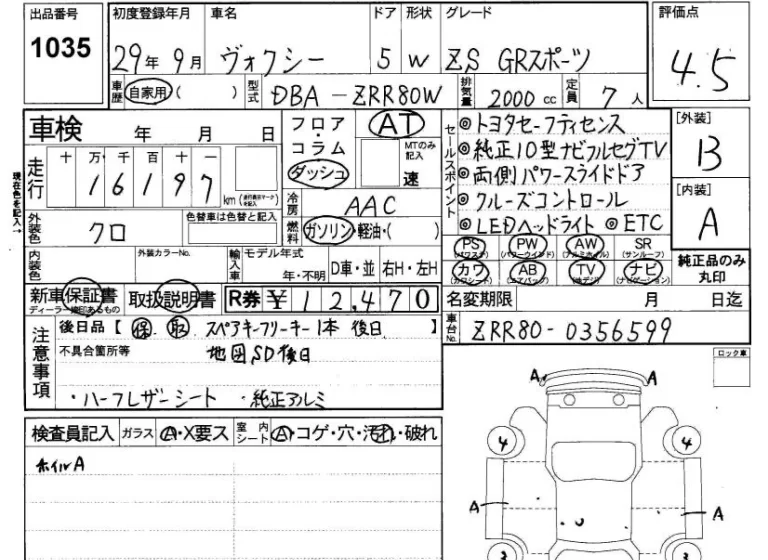 出品番号 初度登録年月 車名 ドア 形状 グレード 評価点
1035 29年 9月 ヴォクシー 5 W ZS GRスポーツ 4.5
車歴 自家用 ( ) 型式 DBA-ZRR80W 排気量 2000cc 定員 7人
車検 年 月 日 フロア・コラム ダッシュ AT MTのみ記入 速
セールスポイント
◎トヨタセーフティセンス
◎純正10型ナビフルセグTV
◎両側パワースライドドア
◎クルーズコントロール
◎LEDヘッドライト ◎ETC
[外装] B
[内装] A
現在色を記入→
走行 十 万 千 百 十 一
1 6 1 9 7 km
冷房 AAC
外装色 クロ 色替車は色替と記入 燃料 ガソリン・軽油・( )
PS (パワステ) PW (パワーウインド) AW (アルミホイル) SR (サンルーフ)
カワ (カワシート) AB (エアバッグ) TV (地デジ) ナビ (ナビゲーション)
純正品のみ丸印
内装色 外装カラーNo. 輸入車 モデル年式 年・不明 D車・並 右H・左H
新車保証書 取扱説明書 R券 ¥12,470 名変期限 月 日迄
ディーラー捺印あるもの
注意事項 後日品【 保 取 スペアキーフリーキー1本 後日 】 車台No. ZRR80-0356599
不具合箇所等 地図SD後日
・ハーフレザーシート ・純正アルミ
ロック車
検査員記入 ガラス A・X要ス 室内シート A・コゲ・穴・汚れ・破れ
ホイルA
A A
4 4
A A
3 3